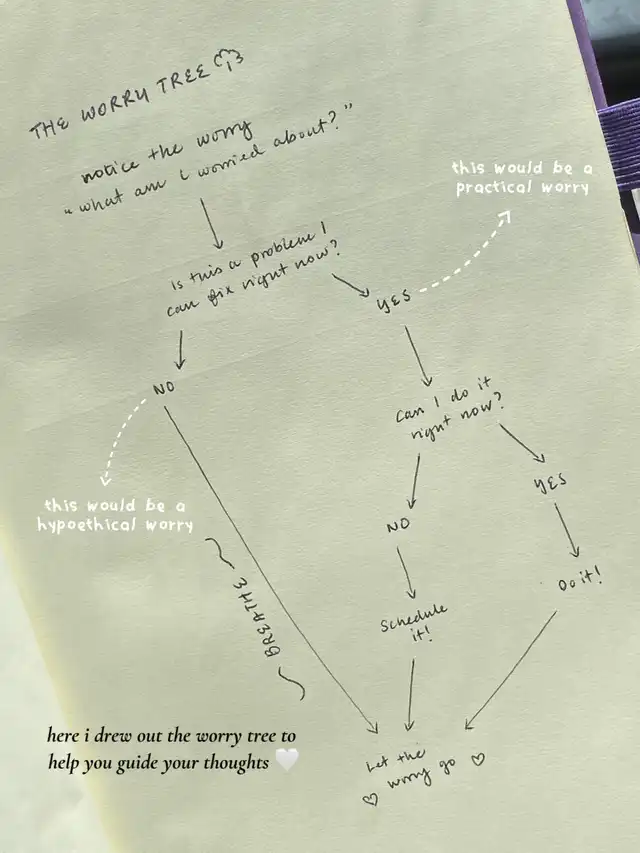 THE WORRY TREE
notice the worry
"what am i worried about?"
this would be a
practical worry
Is this a problem I
can fix right now?
YES
NO
Can I do it
right now?
this would be a
hypoethical worry
NO
YES
BREATHE
Schedule
it!
Do it!
here i drew out the worry tree to
help you guide your thoughts 🤍
Let the
♡ worry go ♡